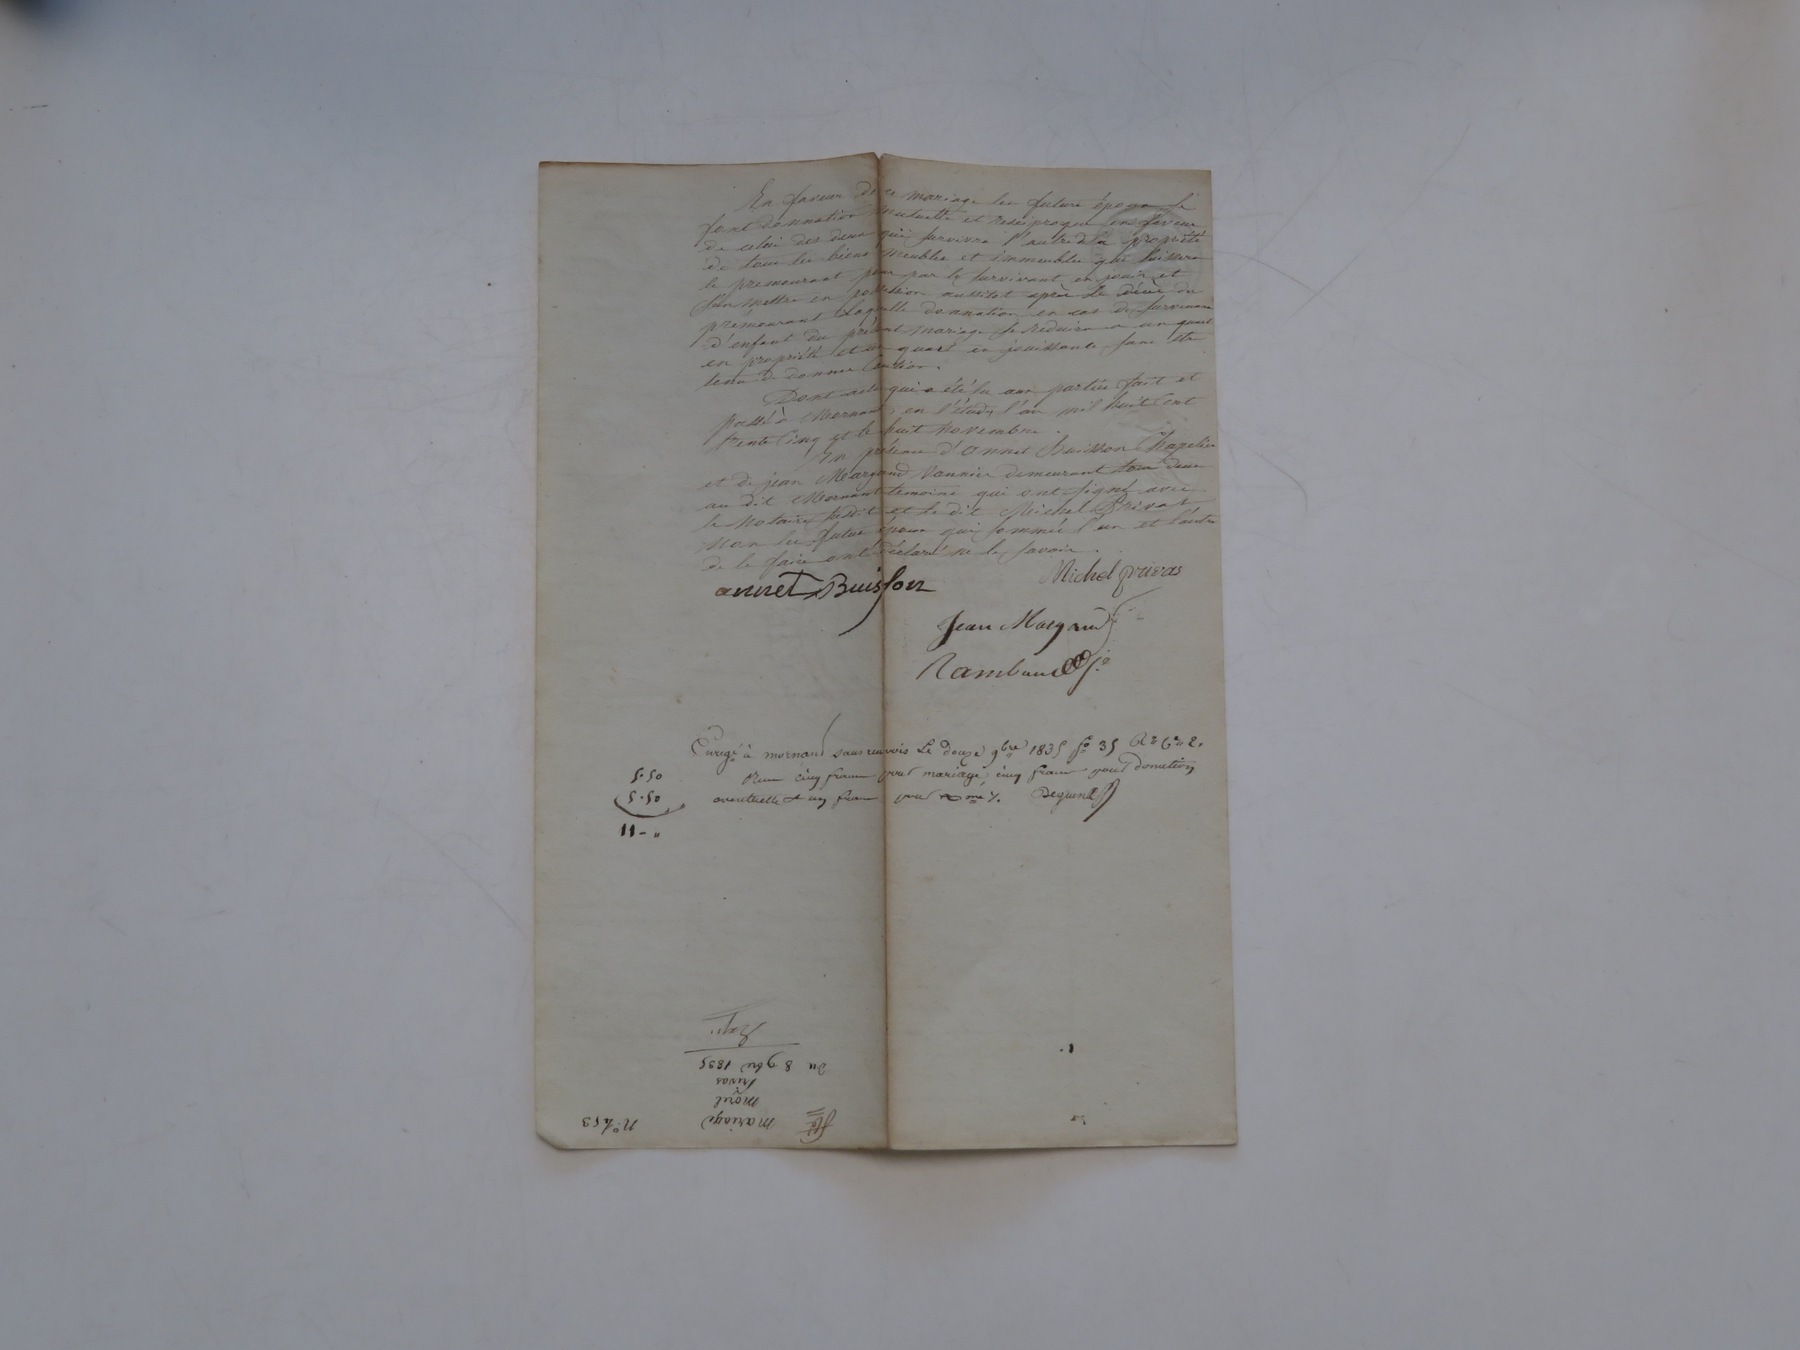 En faveur de ce mariage les future épous se
font donnation mutuelle et reciproque en faveur
de celui des deux qui survivra l'autre de la propriété
de tous les biens meubles et immeubles que laissera
le premourant pour par le survivant en jouir et
s'en mettre en possession aussitot après le décès du
prémourant laquelle donnation en cas de survenance
d'enfant du présent mariage se reduira a un quart
en propriété et un quart en jouissance, sans etre
tenu de donner Caution.
Dont acte qui a été lu aux parties fait et
passé à Mornant, en l'étude, l'an mil huit Cent
trente Cinq et le huit Novembre.
En présence d'annet Buisson Chapelier
et de jean Margand Vannier demeurant tous deux
au dit Mornant temoins qui ont signé avec
le Notaire susdit et le dit Michel Privat
Non les futur époux qui sommés l'un et l'autre
de le faire ont déclaré ne le savoir.
annet Buisson
Michel privas
Jean Margand
Rambaud
Enregé à mornant sans renvois Le douze 9bre 1835 fo 35
Reçu cinq francs pour mariage, cinq francs pour donation
eventuelle et un franc pour
5.50
5.50
11 - "
No 453
mariage
morel
privas
Du 8 9bre 1835